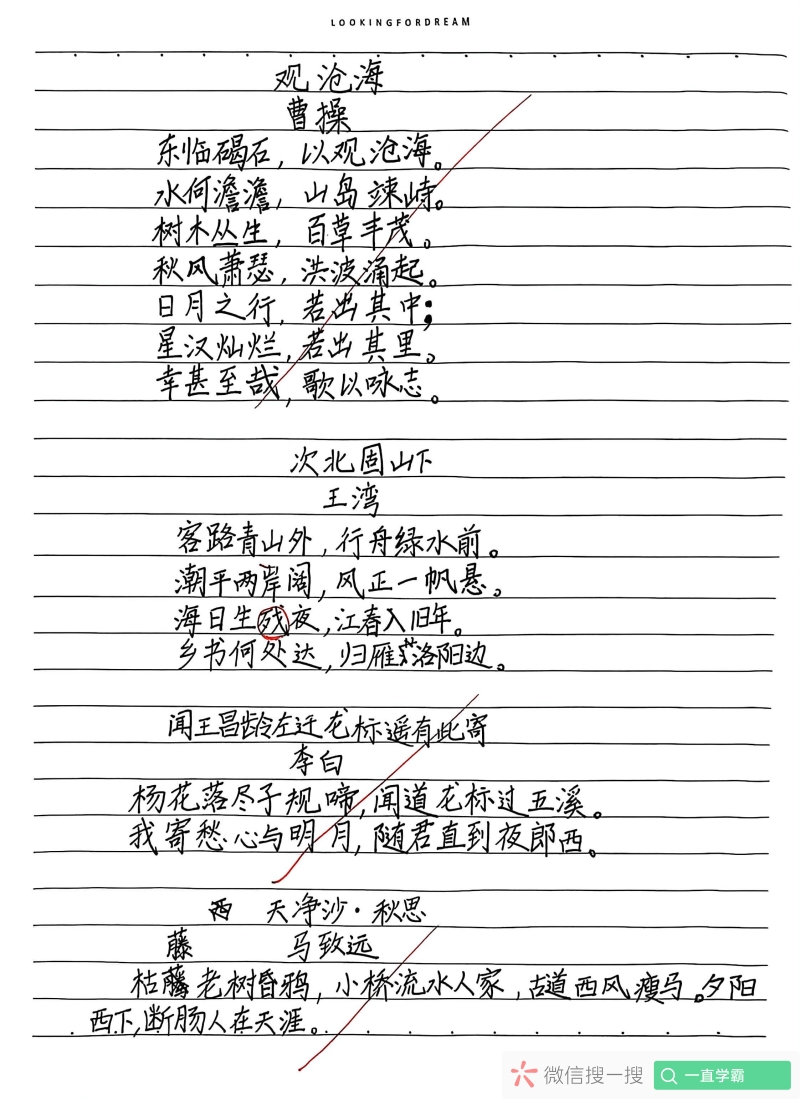 LOOKINGFORDREAM
观沧海
曹操
东临碣石，以观沧海。
水何澹澹，山岛竦峙。
树木丛生，百草丰茂。
秋风萧瑟，洪波涌起。
日月之行，若出其中；
星汉灿烂，若出其里。
幸甚至哉，歌以咏志。
次北固山下
王湾
客路青山外，行舟绿水前。
潮平两岸阔，风正一帆悬。
海日生残夜，江春入旧年。
乡书何处达，归雁洛阳边。
闻王昌龄左迁龙标遥有此寄
李白
杨花落尽子规啼，闻道龙标过五溪。
我寄愁心与明月，随君直到夜郎西。
天净沙·秋思
藤 马致远
枯藤老树昏鸦，小桥流水人家，古道西风瘦马。夕阳
西下，断肠人在天涯。
微信搜一搜 一直学霸